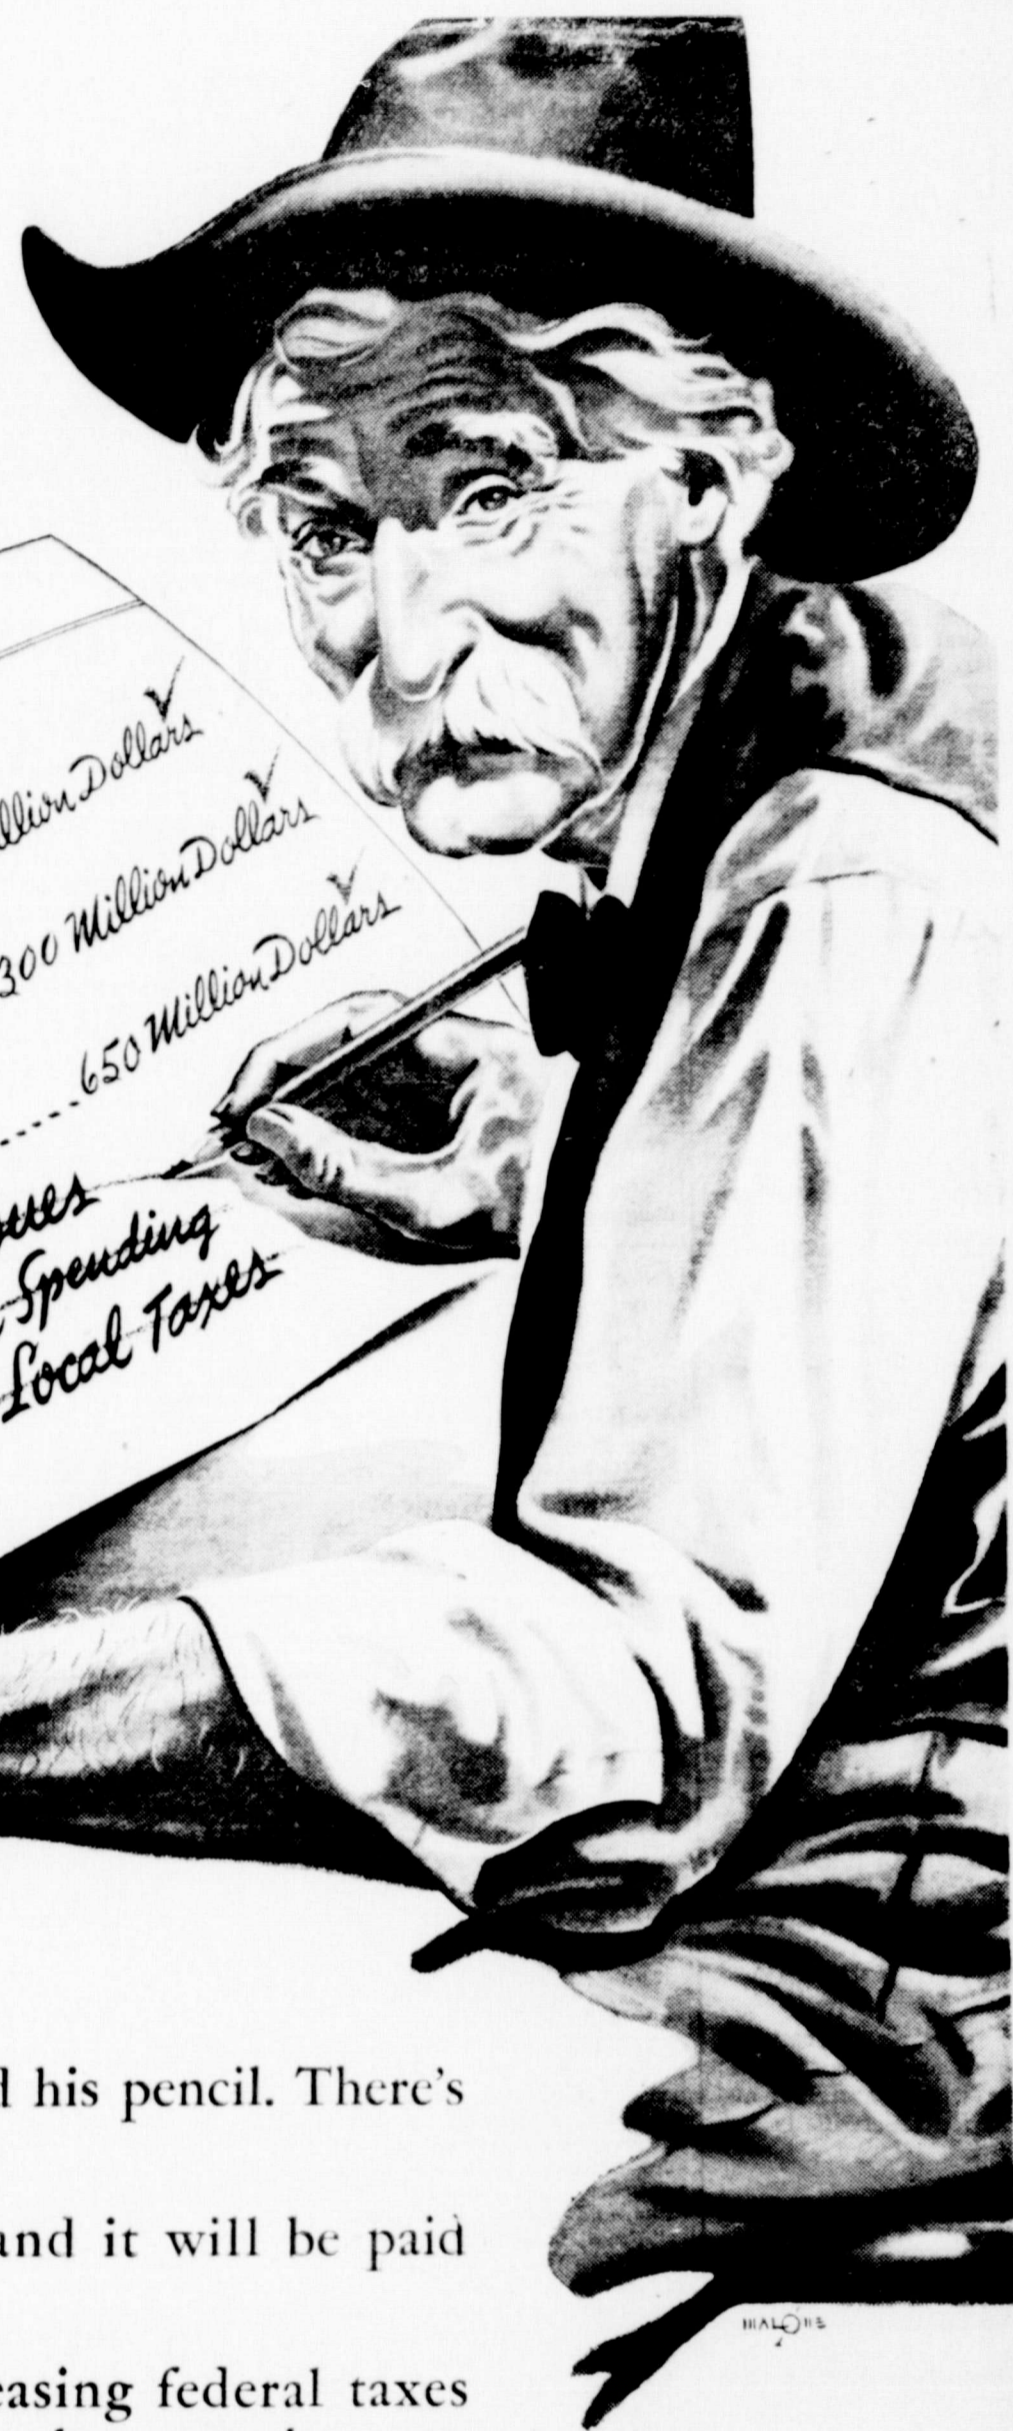 Dollars
300 Million Dollars
650 Million Dollars
Spending
Local Taxes
his pencil. There's
and it will be paid
federal taxes
MALONE